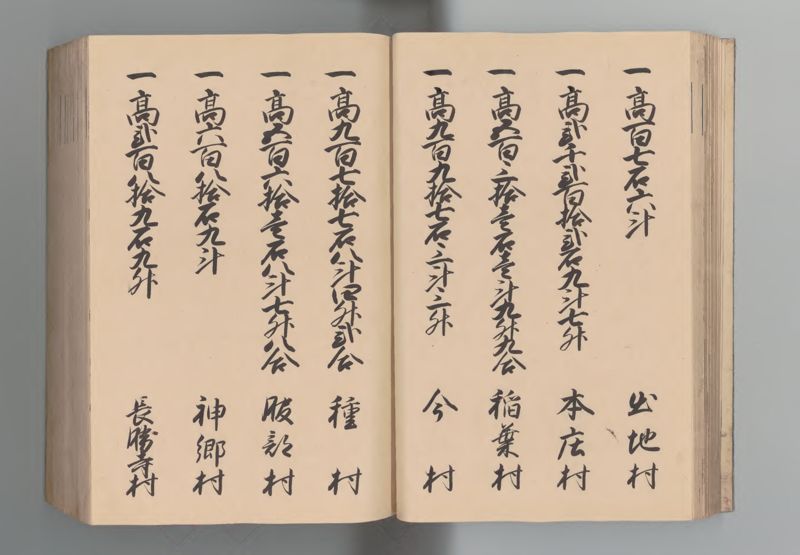 一高百七石六斗 出地村
一高弐千弐百拾弐石九斗七升 本庄村
一高五百三拾壱石壱斗九升九合 稲葉村
一高九百九拾七石三斗三升 今村
一高九百七拾七石八斗四升弐合 種村
一高五百六拾壱石八斗七升八合 服部村
一高六百八拾石九斗 神郷村
一高弐百八拾九石九升 長勝寺村